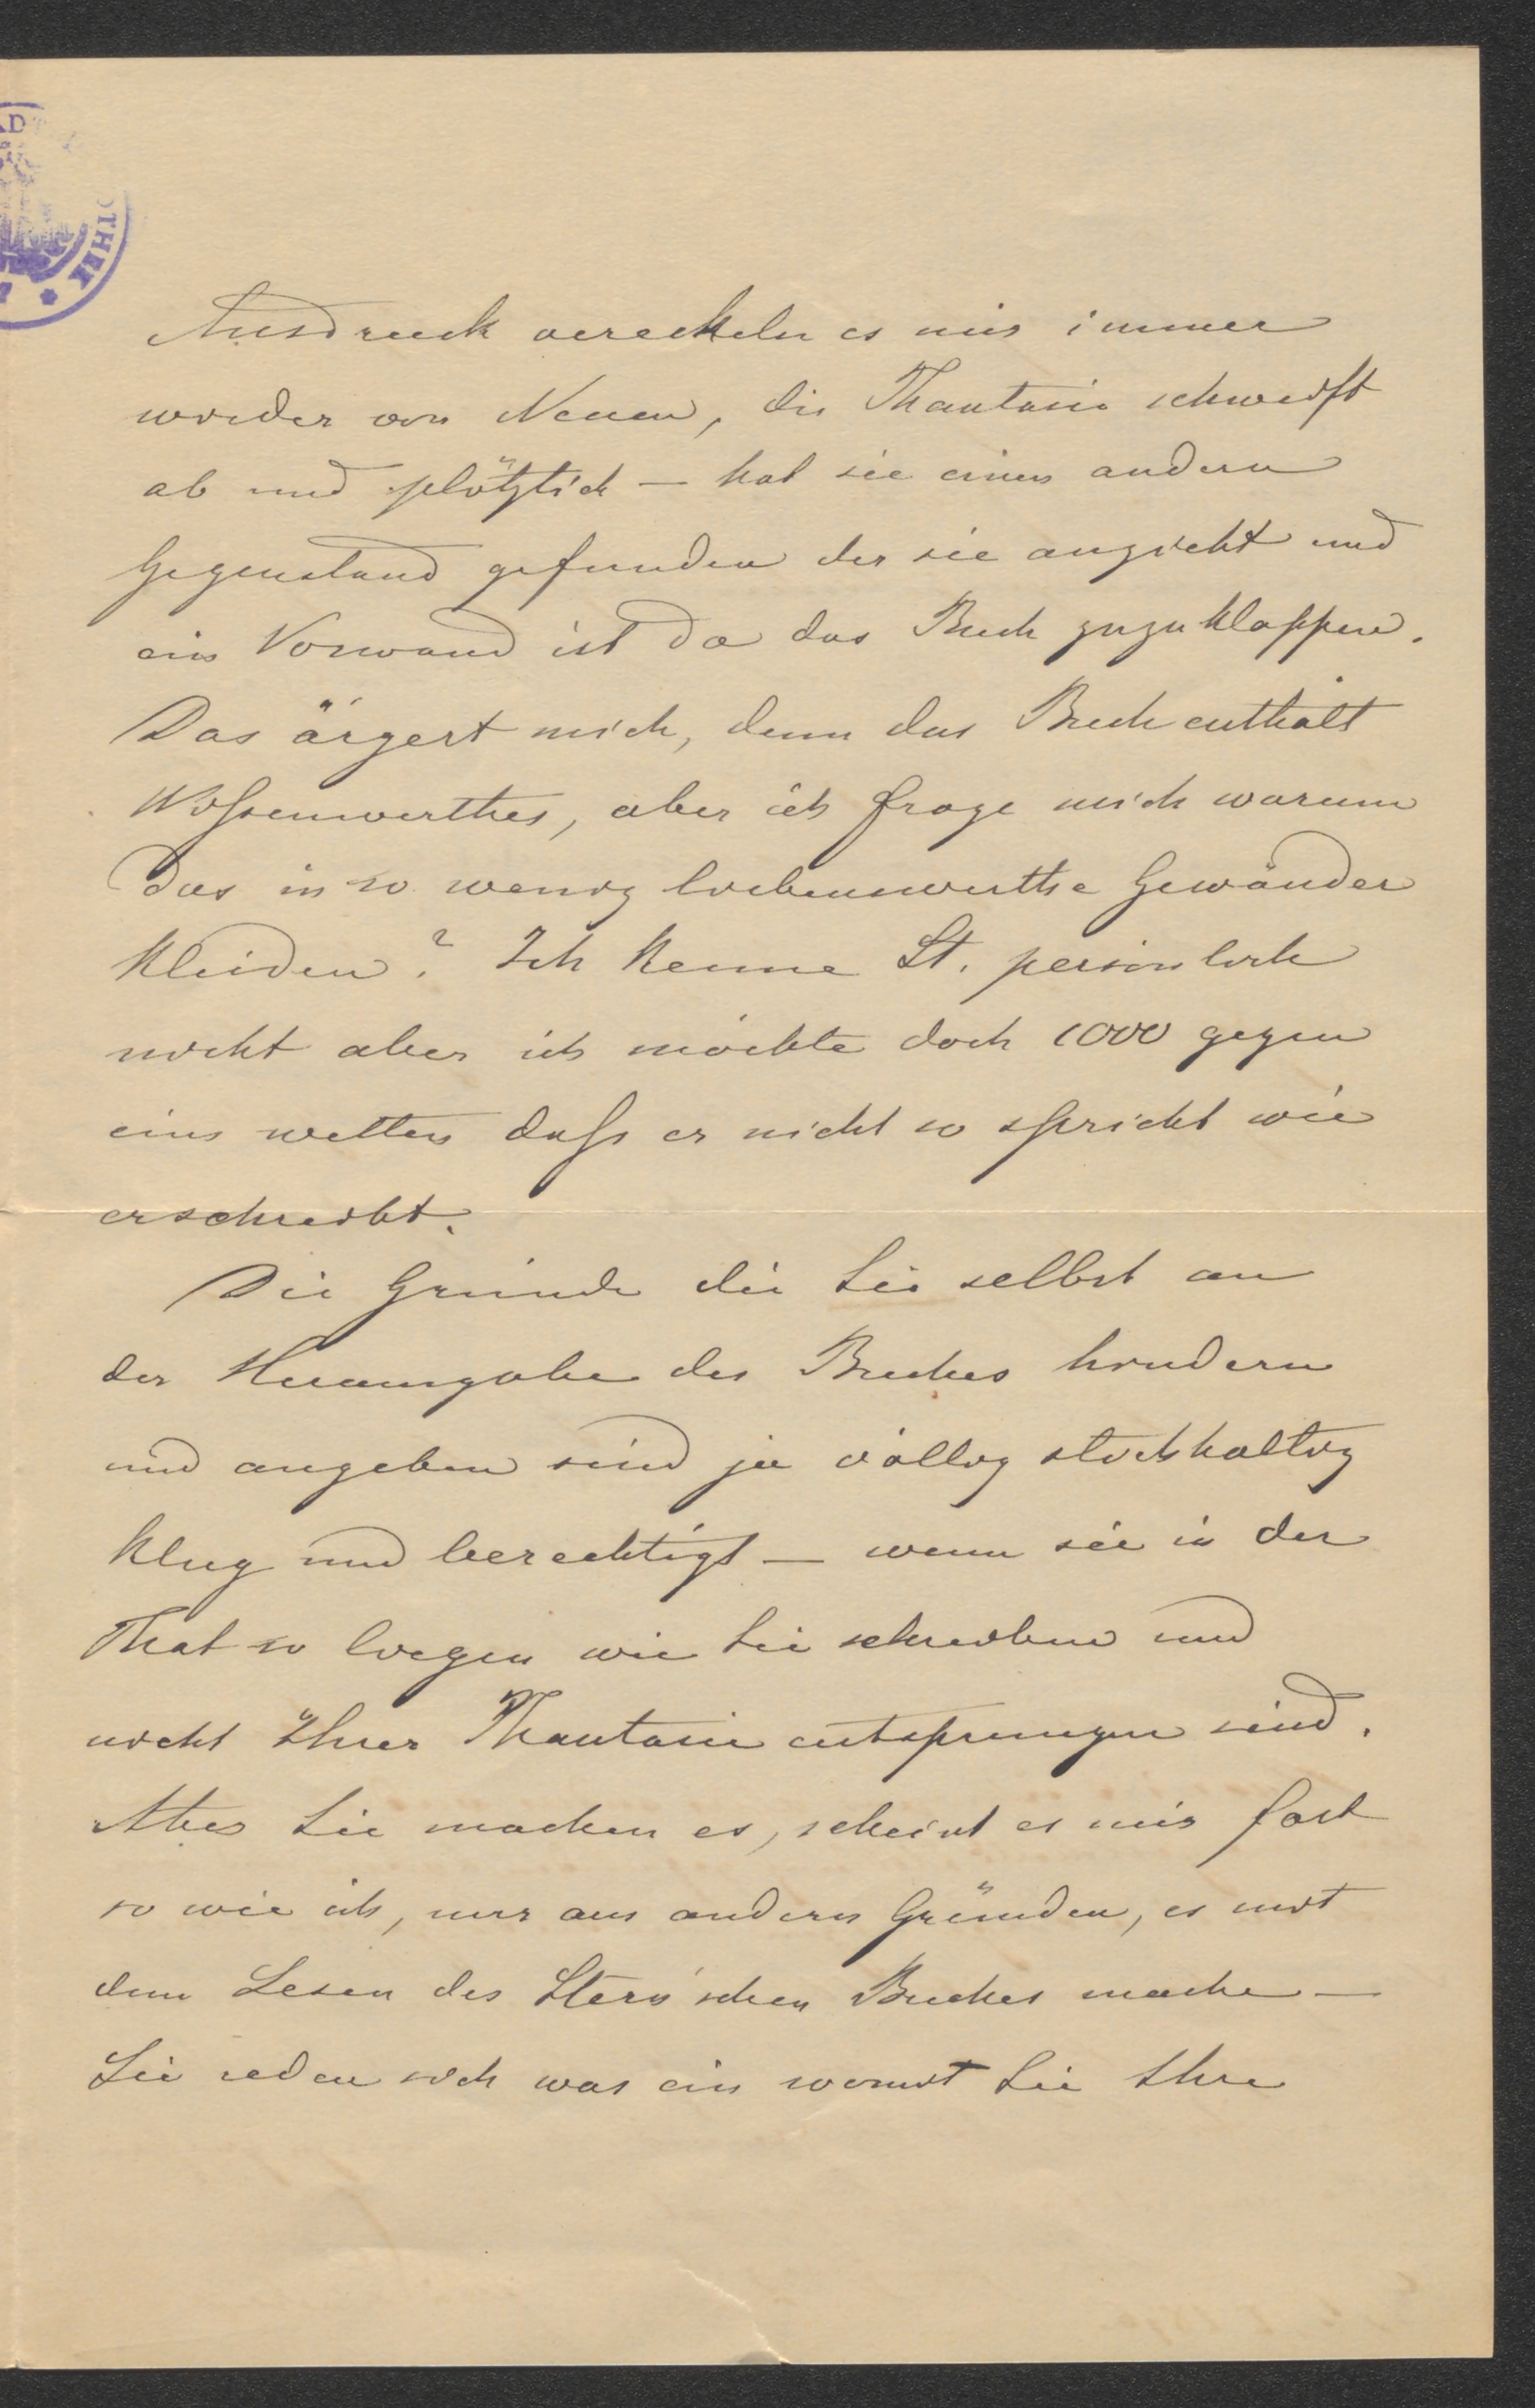 Ausdruck vereckeln es mir immer
wieder von Neuen, die Phantasie schweift
ab und plötzlich — hat sie einen andern
Gegenstand gefunden der sie anzieht und
ein Vorwand ist da das Buch zuzuklappen.
Das ärgert mich, denn das Buch enthält
Wissenwerthes, aber ich frage mich warum
das in so wenig liebenswerthe Gewänder
kleiden? Ich kenne St. persönlich
nicht aber ich möchte doch 1000 gegen
eins wetten daß er nicht so spricht wie
er schreibt.
Die Gründe die Sie selbst an
der Herausgabe des Buches hindern
und angeben sind ja völlig stichhaltig
klug und berechtigt — wenn sie in der
That so liegen wie Sie schreiben und
nicht Ihrer Phantasie entsprungen sind.
Aber Sie machen es, scheint es mir fast
so wie ich, nur aus andern Gründen, es mit
dem Lesen des Stern'schen Buches mache —
Sie reden sich was ein womit Sie Ihre
AD
OTHEK